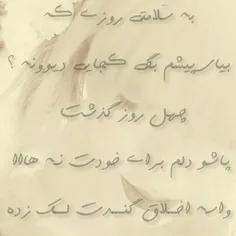 به سلامتی روزی که
بیای پیشم بگی کجایی دیوونه ؟
چهل روز گذشت
پاشو دلم برای خودت نه هااا
واسه اخلاق گندت تنگ شده